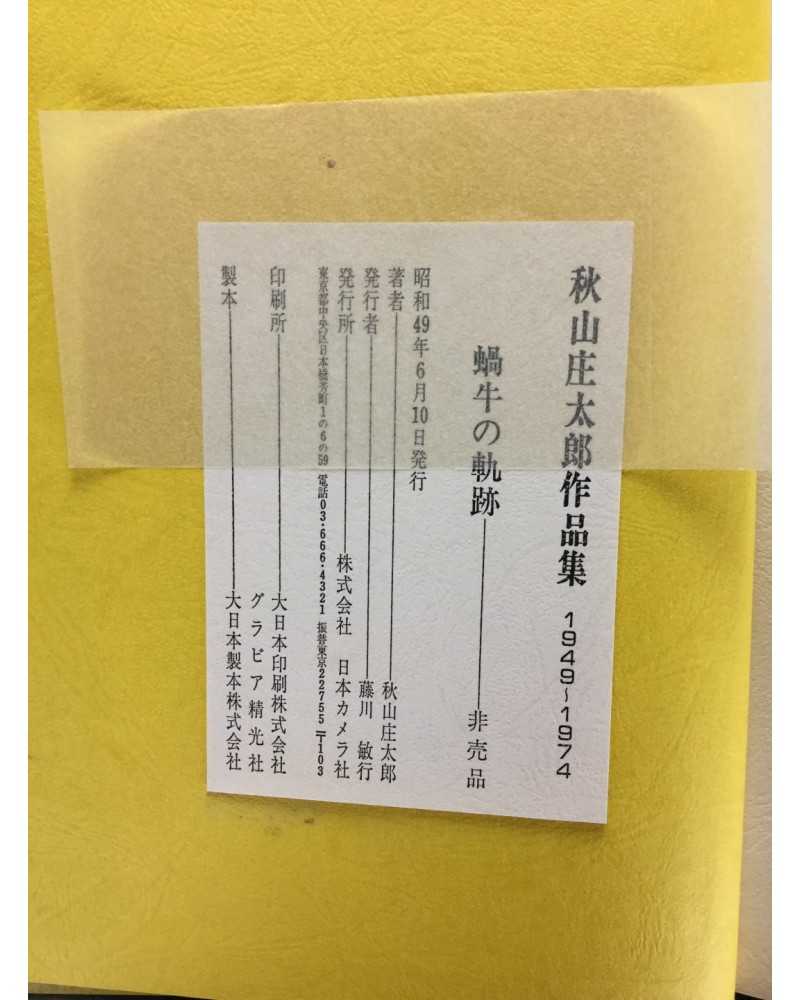 秋山庄太郎作品集 1949〜1974
蝸牛の軌跡――非売品
昭和49年6月10日発行
著者――秋山庄太郎
発行者――藤川 敏行
発行所――株式会社 日本カメラ社
東京都中央区日本橋芳町1の6の59 電話03・666・4321 振替東京22755 〒103
印刷所――大日本印刷株式会社
グラビア精光社
製本――大日本製本株式会社